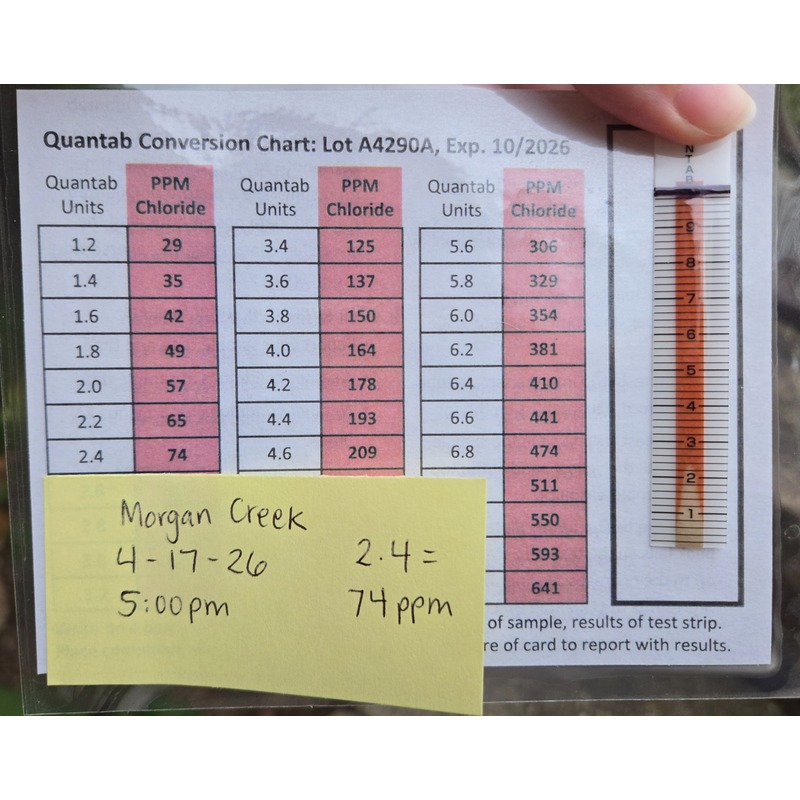 Quantab Conversion Chart: Lot A4290A, Exp. 10/2026
Quantab Units PPM Chloride Quantab Units PPM Chloride Quantab Units PPM Chloride
1.2 29 3.4 125 5.6 306
1.4 35 3.6 137 5.8 329
1.6 42 3.8 150 6.0 354
1.8 49 4.0 164 6.2 381
2.0 57 4.2 178 6.4 410
2.2 65 4.4 193 6.6 441
2.4 74 4.6 209 6.8 474
511
550
593
641
of sample, results of test strip.
re of card to report with results.
Morgan Creek
4-17-26
5:00pm
2.4 =
74 ppm
NTAB
9
8
7
6
5
4
3
2
1